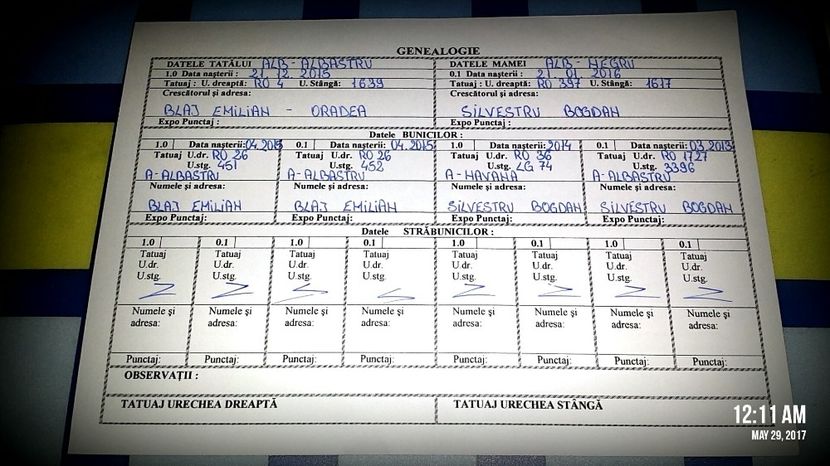 GENEALOGIE
DATELE TATĂLUI ALB-ALBASTRU
1.0 Data nașterii : 21.12.2015
Tatuaj : U. dreaptă: RO 4 U. Stângă: 1639
Crescătorul și adresa:
BLAJ EMILIAN - ORADEA
Expo Punctaj :
DATELE MAMEI ALB-NEGRU
0.1 Data nașterii : 21.01.2016
Tatuaj : U. dreaptă: RO 397 U. Stângă: 1617
Crescătorul și adresa:
SILVESTRU BOGDAN
Expo Punctaj:
Datele BUNICILOR :
1.0 Data nașterii: 04.2015
Tatuaj U.dr. RO 26
U.stg. 451
A-ALBASTRU
Numele și adresa:
BLAJ EMILIAN
Expo Punctaj:
0.1 Data nașterii: 04.2015
Tatuaj U.dr. RO 26
U.stg. 452
A-ALBASTRU
Numele și adresa:
BLAJ EMILIAN
Expo Punctaj:
1.0 Data nașterii: 2014
Tatuaj U.dr. RO 36
U.stg. LG 74
A-HAVANA
Numele și adresa:
SILVESTRU BOGDAN
Expo Punctaj:
0.1 Data nașterii: 03.2013
Tatuaj U.dr. RO 1727
U.stg. 3396
A-ALBASTRU
Numele și adresa:
SILVESTRU BOGDAN
Expo Punctaj:
Datele STRĂBUNICILOR :
1.0 0.1 1.0 0.1 1.0 0.1 1.0 0.1
Tatuaj Tatuaj Tatuaj Tatuaj Tatuaj Tatuaj Tatuaj Tatuaj
U.dr. U.dr. U.dr. U.dr. U.dr. U.dr. U.dr. U.dr.
U.stg. U.stg. U.stg. U.stg. U.stg. U.stg. U.stg. U.stg.
Numele și Numele și Numele și Numele și Numele și Numele și Numele și Numele și
adresa: adresa: adresa: adresa: adresa: adresa: adresa: adresa:
Punctaj: Punctaj: Punctaj: Punctaj: Punctaj: Punctaj: Punctaj: Punctaj:
OBSERVAȚII :
TATUAJ URECHEA DREAPTĂ TATUAJ URECHEA STÂNGĂ
12:11 AM
MAY 29, 2017